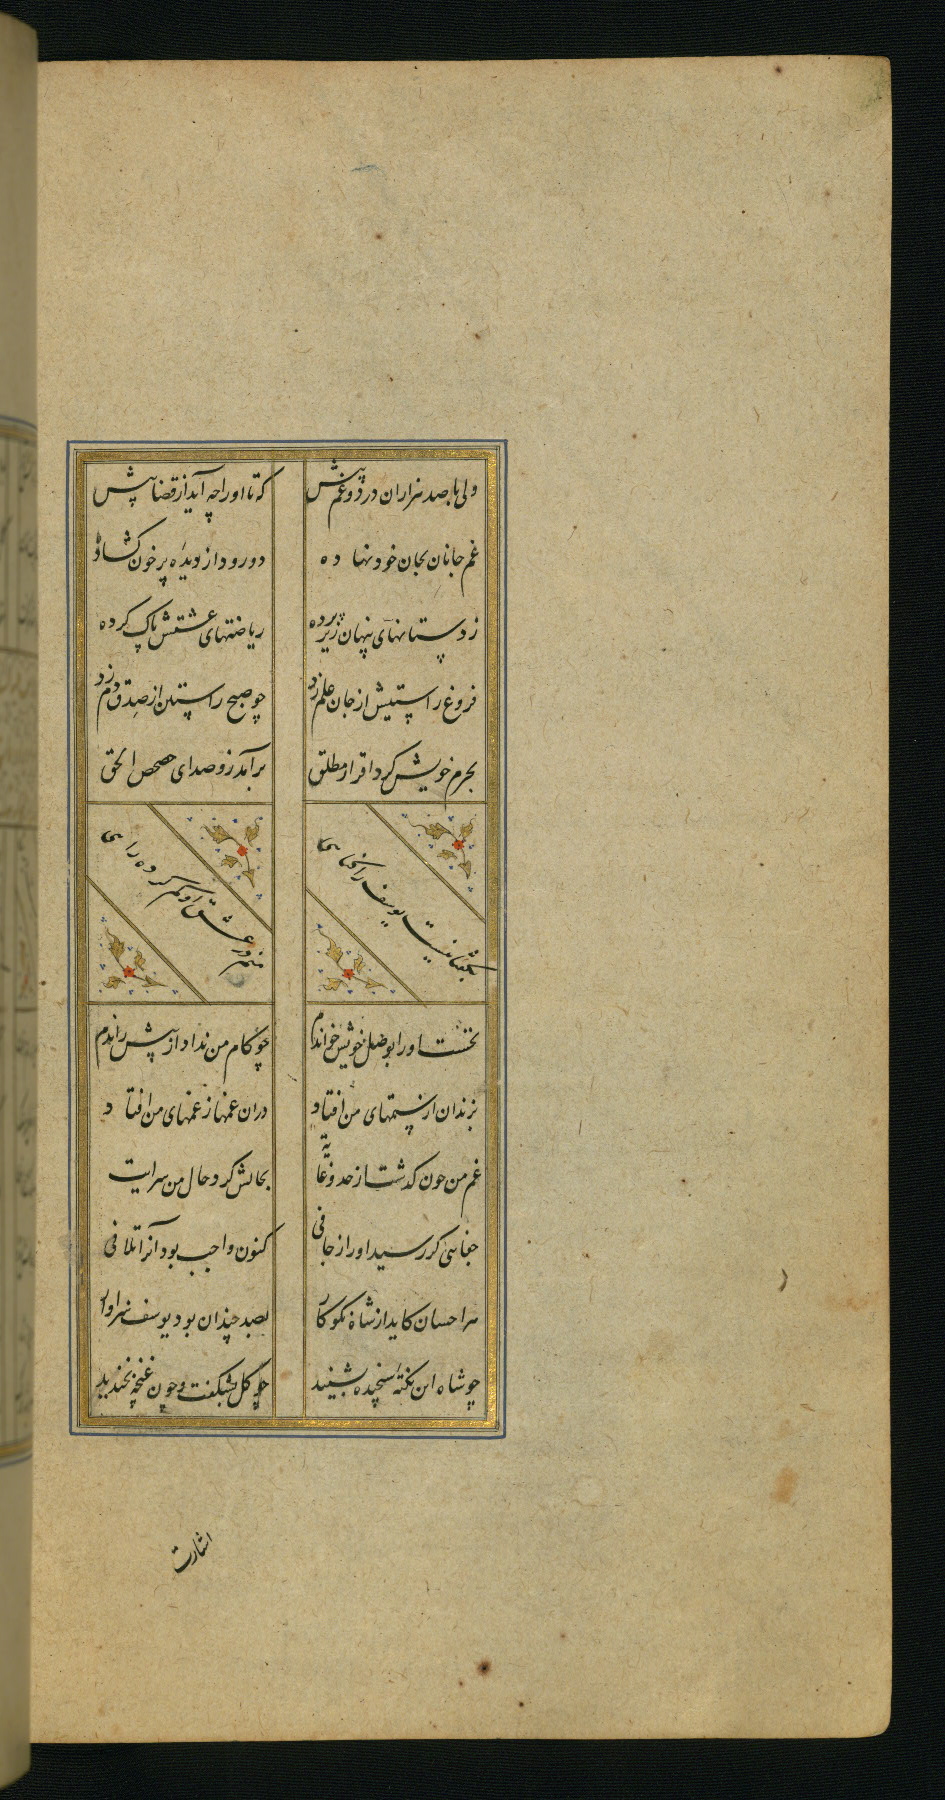 ولی با صد هزاران درد و غم پیش
که تا او را چه آید از قضا پیش
غم جانان بجان خود نهاده
دو رود از دیده پر خون کشاده
ز دستانهای پنهان زیر پرده
ریاضتهای عشقش پاک کرده
فروغ راستیش از جان علم زد
چو صبح راستان از صدق دم زد
بجرم خویش کرد اقرار مطلق
برآمد زو صدای حصحص الحق
بگفتا نیست یوسف را گناهی
منم در عشق او گم کرده راهی
نخست او را بوصل خویش خواندم
چو کام من نداد از پیش راندم
بزندان از ستمهای من افتاد
دران غمها ز غمهای من افتاد
غم من چون گذشت از حد و غایت
بحالش کرد حال من سرایت
جفایی گر رسید او را ز جافی
کنون واجب بود آنرا تلافی
هر احسان کاید از شاه نکوکار
بصد چندان بود یوسف سزاوار
چو شاه این نکته سنجیده بشنید
چو گل بشکفت و چون غنچه بخندید
اشارت